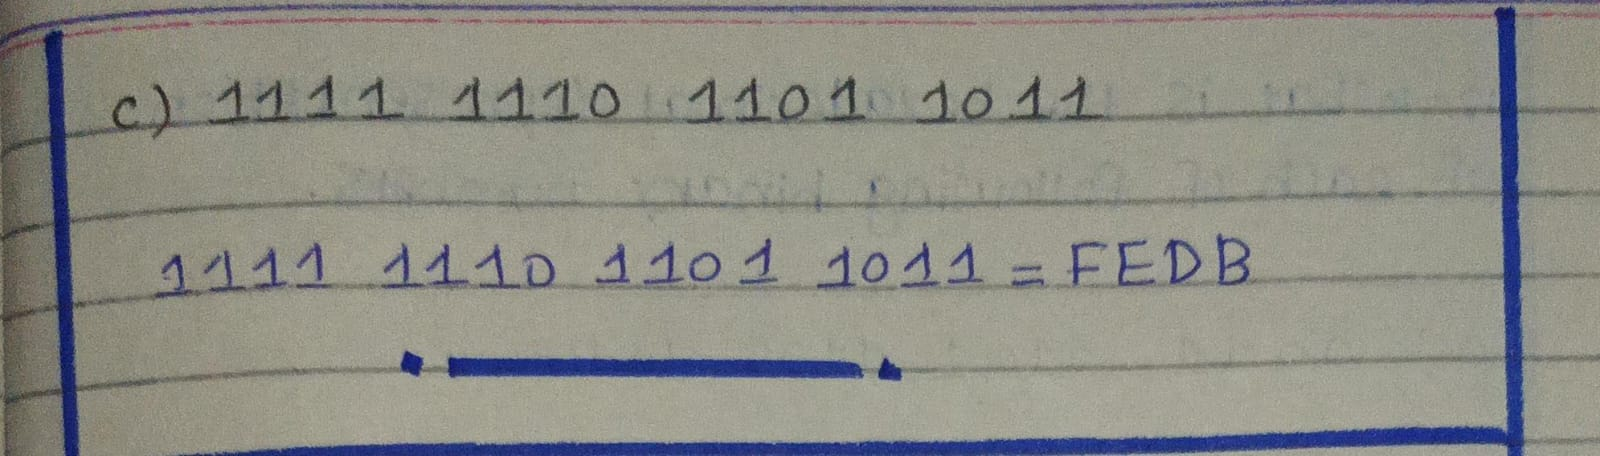 c) 1111 1110 1101 1011
1111 1110 1101 1011 = FEDB